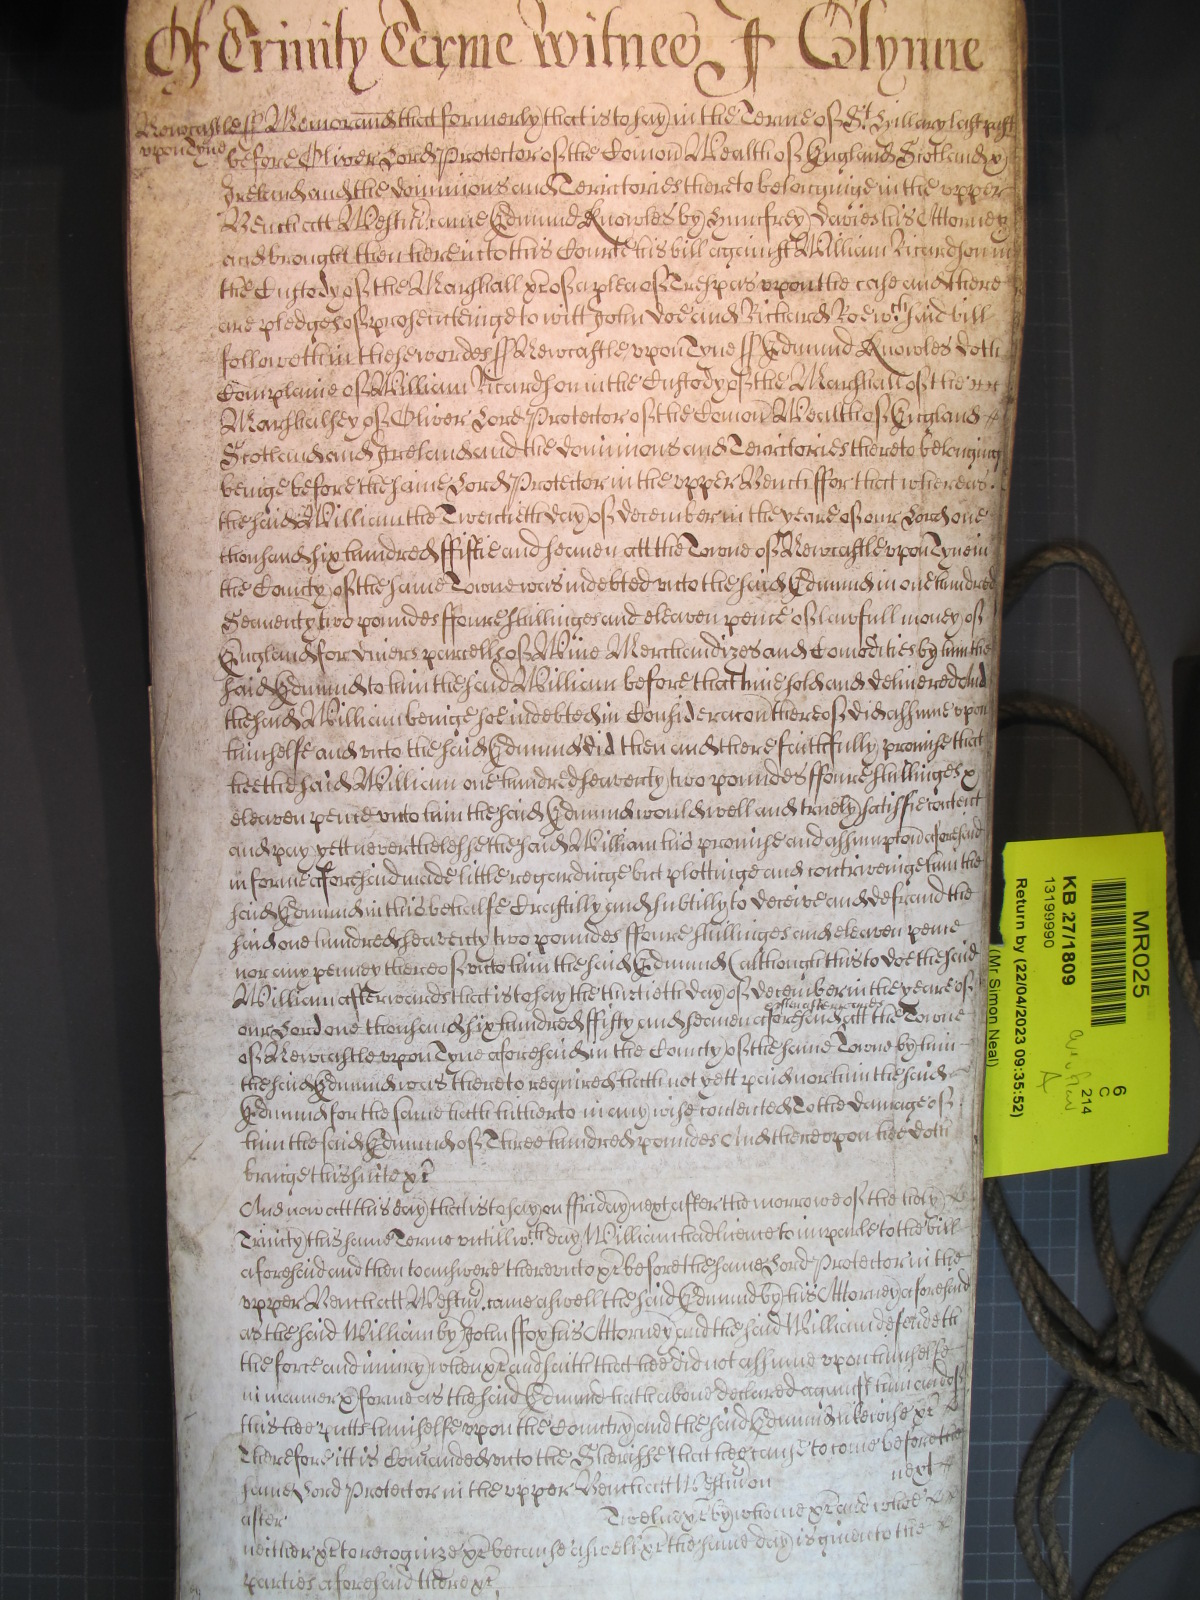 Of Trinity Terme witnes J Glynne
Newcastle ss Memorand that formerly that is to say in the Terme of St Hillary last past
upon Tyne before Oliver Lord Protector of the Comon Wealth of England Scotland &
Ireland and the dominions and Territories thereto belonginge in the upper
Bench att Westmr came Edmund Knowles by Humfrey Davies his Attorney
and brought then here into this Courte his bill against William Ricardson in
the Custody of the Marshall &c of a plea of Trespas upon the case and there
are pledges of prosecuteinge to witt John Doe and Richard Roe wch said bill
followeth in these wordes ss Newcastle upon Tyne ss Edmund Knowles doth
Complaine of William Ricardson in the Custody of the Marshall of the
Marshalsey of Oliver Lord Protector of the Comon Wealth of England
Scotland and Ireland and the dominions and Territories thereto belonging
beinge before the same Lord Protector in the upper Bench ffor that whereas
the said William the Twentieth day of december in the yeare of our Lord one
thousand six hundred ffiftie and seaven att the Towne of Newcastle upon Tyne in
the County of the same Towne was indebted unto the said Edmund in one hundred
Seaventy two poundes ffoure shillinges and eleaven pence of lawfull money of
England for divers parcells of Wine Merchandizes and Comodities by him the
said Edmund to him the said William before that time sold and delivered And
the said William beinge soe indebted in Consideracon thereof did assume upon
himselfe and unto the said Edmund did then and there faithfully promise that
hee the said William one hundred seaventy two poundes ffoure shillinges &
eleaven pence unto him the said Edmund would well and truely satisfie content
and pay yett neverthelesse the said William his promise and assumption aforesaid
in forme aforesaid made little regardinge but plottinge and contriveinge him the
said Edmund in this behalfe Craftilly and subtilly to deceive and defraud the
said one hundred seaventy two poundes ffoure shillinges and eleaven pence
nor any penney thereof unto him the said Edmund (although this to doe the said
William afterwards that is to say the thirtieth day of december in the yeare of
our Lord one thousand six hundred ffifty and seaven aforesaid att the Towne
of Newcastle upon Tyne aforesaid in the County of the same Towne by him
the said Edmund was thereto required hath not yett paid nor him the said
Edmund for the same hath hitherto in any wise contented To the damage of
him the said Edmund of Three hundred poundes And thereupon hee doth
bringe this suite &c
And now att this day that is to say on ffriday next after the morrowe of the holy
Trinity this same Terme untill wch day William had licence to imparle to the bill
aforesaid and then to answere thereunto &c before the same Lord Protector in the
upper Bench att Westmr came aswell the said Edmund by his Attorney aforesaid
as the said William by John ffox his Attorney and the said William defendeth
the force and iniury when &c and saith that hee did not assume upon himselfe
in manner & forme as the said Edmund hath above declared against him and of
this hee putts himselfe upon the Country and the said Edmund likewise &c
Therefore itt is Comanded unto the Sheriffe that hee cause to come before the
same Lord Protector in the upper Bench att Westmr on next
after Twelve &c by whome &c and whoe
neither &c to recognize &c because aswell &c the same day is given to the
parties aforesaid there &c
MR025
6
C
214
KB 27/1809
13199990
Return by (22/04/2023 09:35:52)
(Mr Simon Neal)